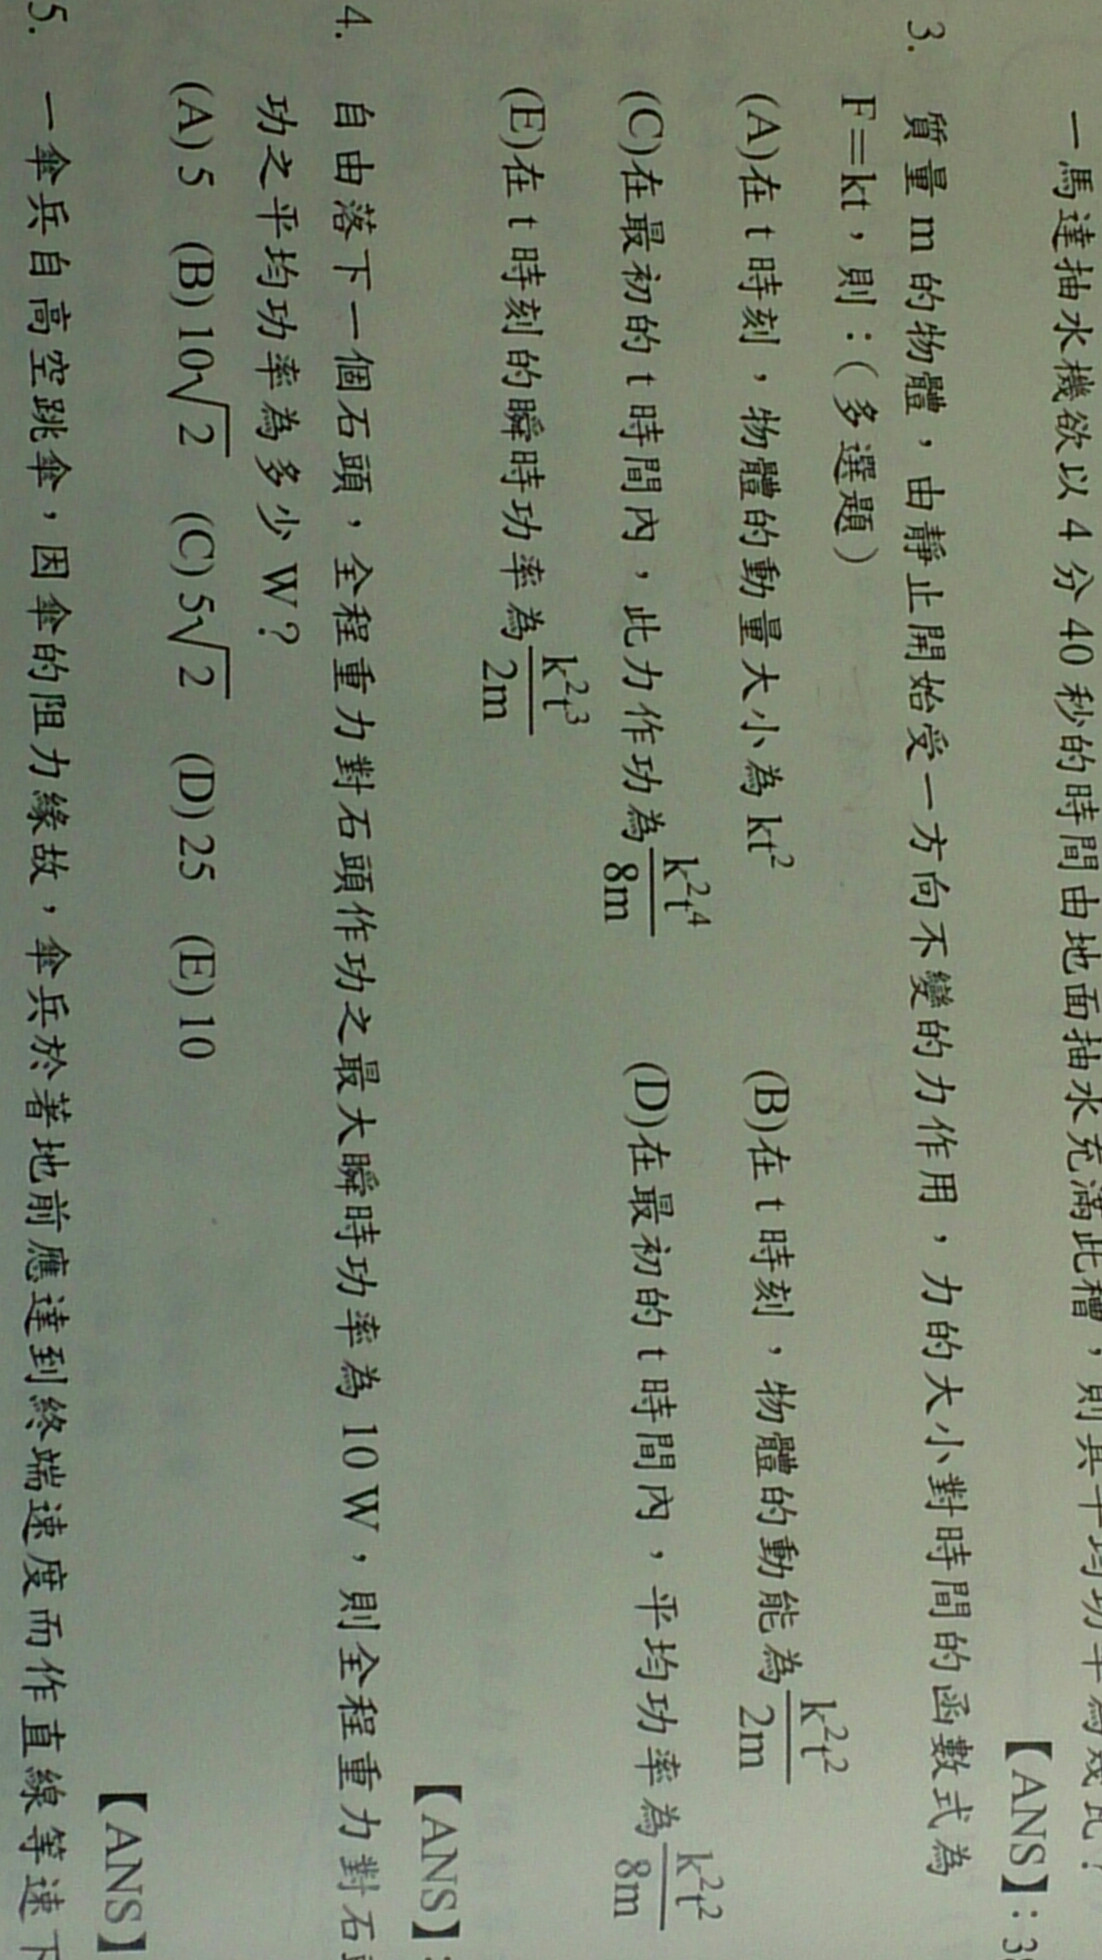 一馬達抽水機欲以 4 分 40 秒的時間由地面抽水充滿此槽，則其平均功率為幾
【ANS】:3
3. 質量 m 的物體，由靜止開始受一方向不變的力作用，力的大小對時間的函數式為
F=kt，則：(多選題)
(A)在 t 時刻，物體的動量大小為 kt² (B)在 t 時刻，物體的動能為 k²t²/2m
(C)在最初的 t 時間內，此力作功為 k²t⁴/8m (D)在最初的 t 時間內，平均功率為 k²t²/8m
(E)在 t 時刻的瞬時功率為 k²t³/2m
【ANS】:
4. 自由落下一個石頭，全程重力對石頭作功之最大瞬時功率為 10 W，則全程重力對石
功之平均功率為多少 W？
(A) 5 (B) 10√2 (C) 5√2 (D) 25 (E) 10
【ANS】
5. 一傘兵自高空跳傘，因傘的阻力緣故，傘兵於著地前應達到終端速度而作直線等速下